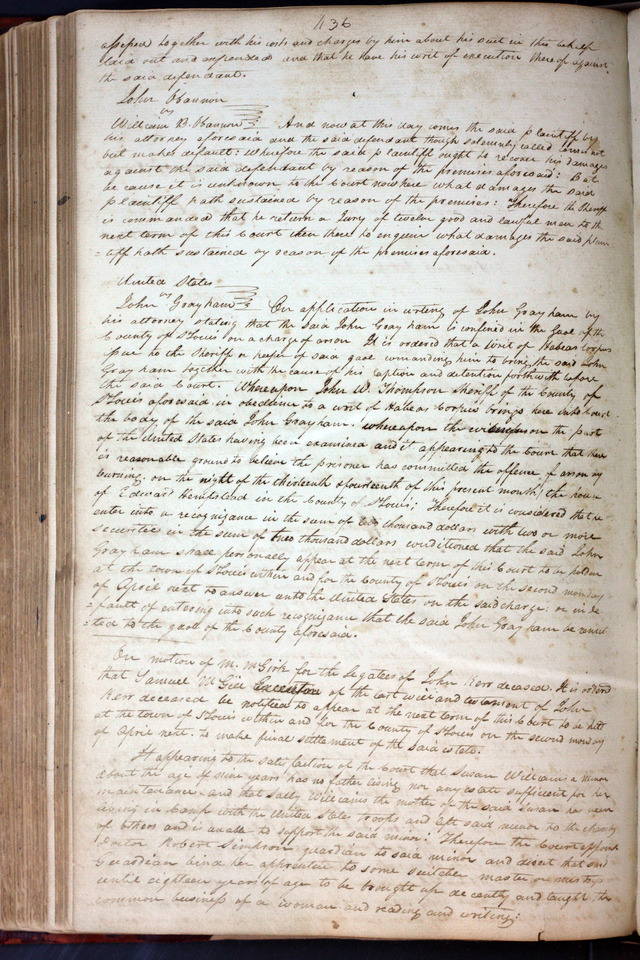 436
assessed together with his costs and charges by him about his suit in this behalf
laid out and expended and that he have his writ of execution thereof against
the said defendant.
John OBannon
vs
William B. OBannon And now at this day comes the said plaintiff by
his attorney aforesaid and the said defendant though solemnly called comes not
but makes default: wherefore the said plaintiff ought to recover his damages
against the said defendant by reason of the premises aforesaid: But
because it is unknown to the Court now here what damages the said
plaintiff hath sustained by reason of the premises: Therefore the Sheriff
is commanded that he return a Jury of twelve good and lawful men to the
next term of this Court then there to enquire what damages the said plain
=tiff hath sustained by reason of the premises aforesaid.
United States
vs
John Grayham On application in writing of John Grayham by
his attorney stating that the said John Grayham is confined in the Gaol of the
County of St Louis on a charge of arson It is ordered that a writ of Habeas Corpus
issue to the Sheriff or keeper of said gaol comanding him to bring the said John
Grayham together with the cause of his caption and detention forthwith before
the said Court. Whereupon John W. Thompson Sheriff of the County of
St Louis aforesaid in obedience to a writ of Habeas Corpus brings here into Court
the body of the said John Grayham. whereupon the witnesses on the part
of the United States having been examined and it appearing to the Court that there
is reasonable ground to believe the prisoner has committed the offence of arson by
burning, on the night of the thirteenth & fourteenth of this present month, the house
of Edward Hempstead in the County of St Louis; Therefore it is considered that he
enter into a recognizance in the sum of two thousand dollars with two or more
securities in the sum of two thousand dollars conditioned that the said John
Grayham shall personally appear at the next term of this Court to be holden
at the town of St Louis within and for the County of St Louis on the second monday
of April next to answer unto the United States on the said charge; or in de
=fault of entering into such recognizance that the said John Grayham be remit
=ted to the gaol of the County aforesaid.
On motion of M. McGirk for the legatees of John Kerr deceased. It is ordered
that Samuel McGill Executor of the last will and testament of John
Kerr deceased be notified to appear at the next term of this Court to be held
at the town of St Louis within and for the County of St Louis on the second monday
of April next. to make final settlement of the said estate.
It appearing to the satisfaction of the Court that Susan Williams a minor
about the age of nine years has no father living nor any estate sufficient for her
maintainance. and that Sally Williams the mother of the said Susan has been
living in Camp with the United States troops and left said minor to the charity
of others and is unable to support the said minor: Therefore the Court appoint
Doctor Robert Simpson guardian to said minor and direct that said
Guardian bind her apprentice to some suitable master or mistress
until eighteen years of age to be brought up decently and taught the
common business of a woman and reading and writing: